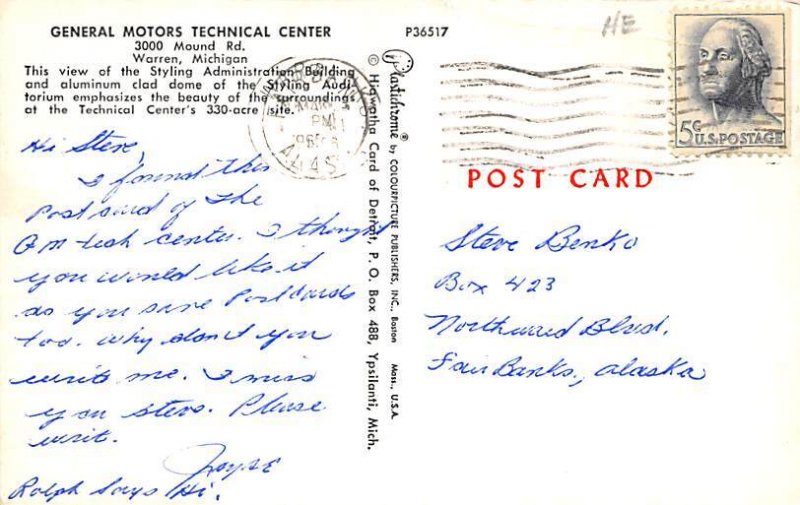 GENERAL MOTORS TECHNICAL CENTER
3000 Mound Rd.
Warren, Michigan
This view of the Styling Administration Building
and aluminum clad dome of the Styling Audi-
torium emphasizes the beauty of the surroundings
at the Technical Center's 330-acre site.
Hi Steve,
I found this
Postcard of the
GM tech center. I thought
you would like it
as you save Postcards
too. why don't you
write me. I miss
you Steve. Please
writ.
Joyce
Ralph Says Hi.
© Hiawatha Card of Detroit, P. O. Box 488, Ypsilanti, Mich.
Plastichrome® by COLOURPICTURE PUBLISHERS, INC., Boston Mass., U.S.A.
P36517
HE
PM
5¢ U.S. POSTAGE
POST CARD
Steve Benko
Box 423
Northward Blvd.
FairBanks, alaska